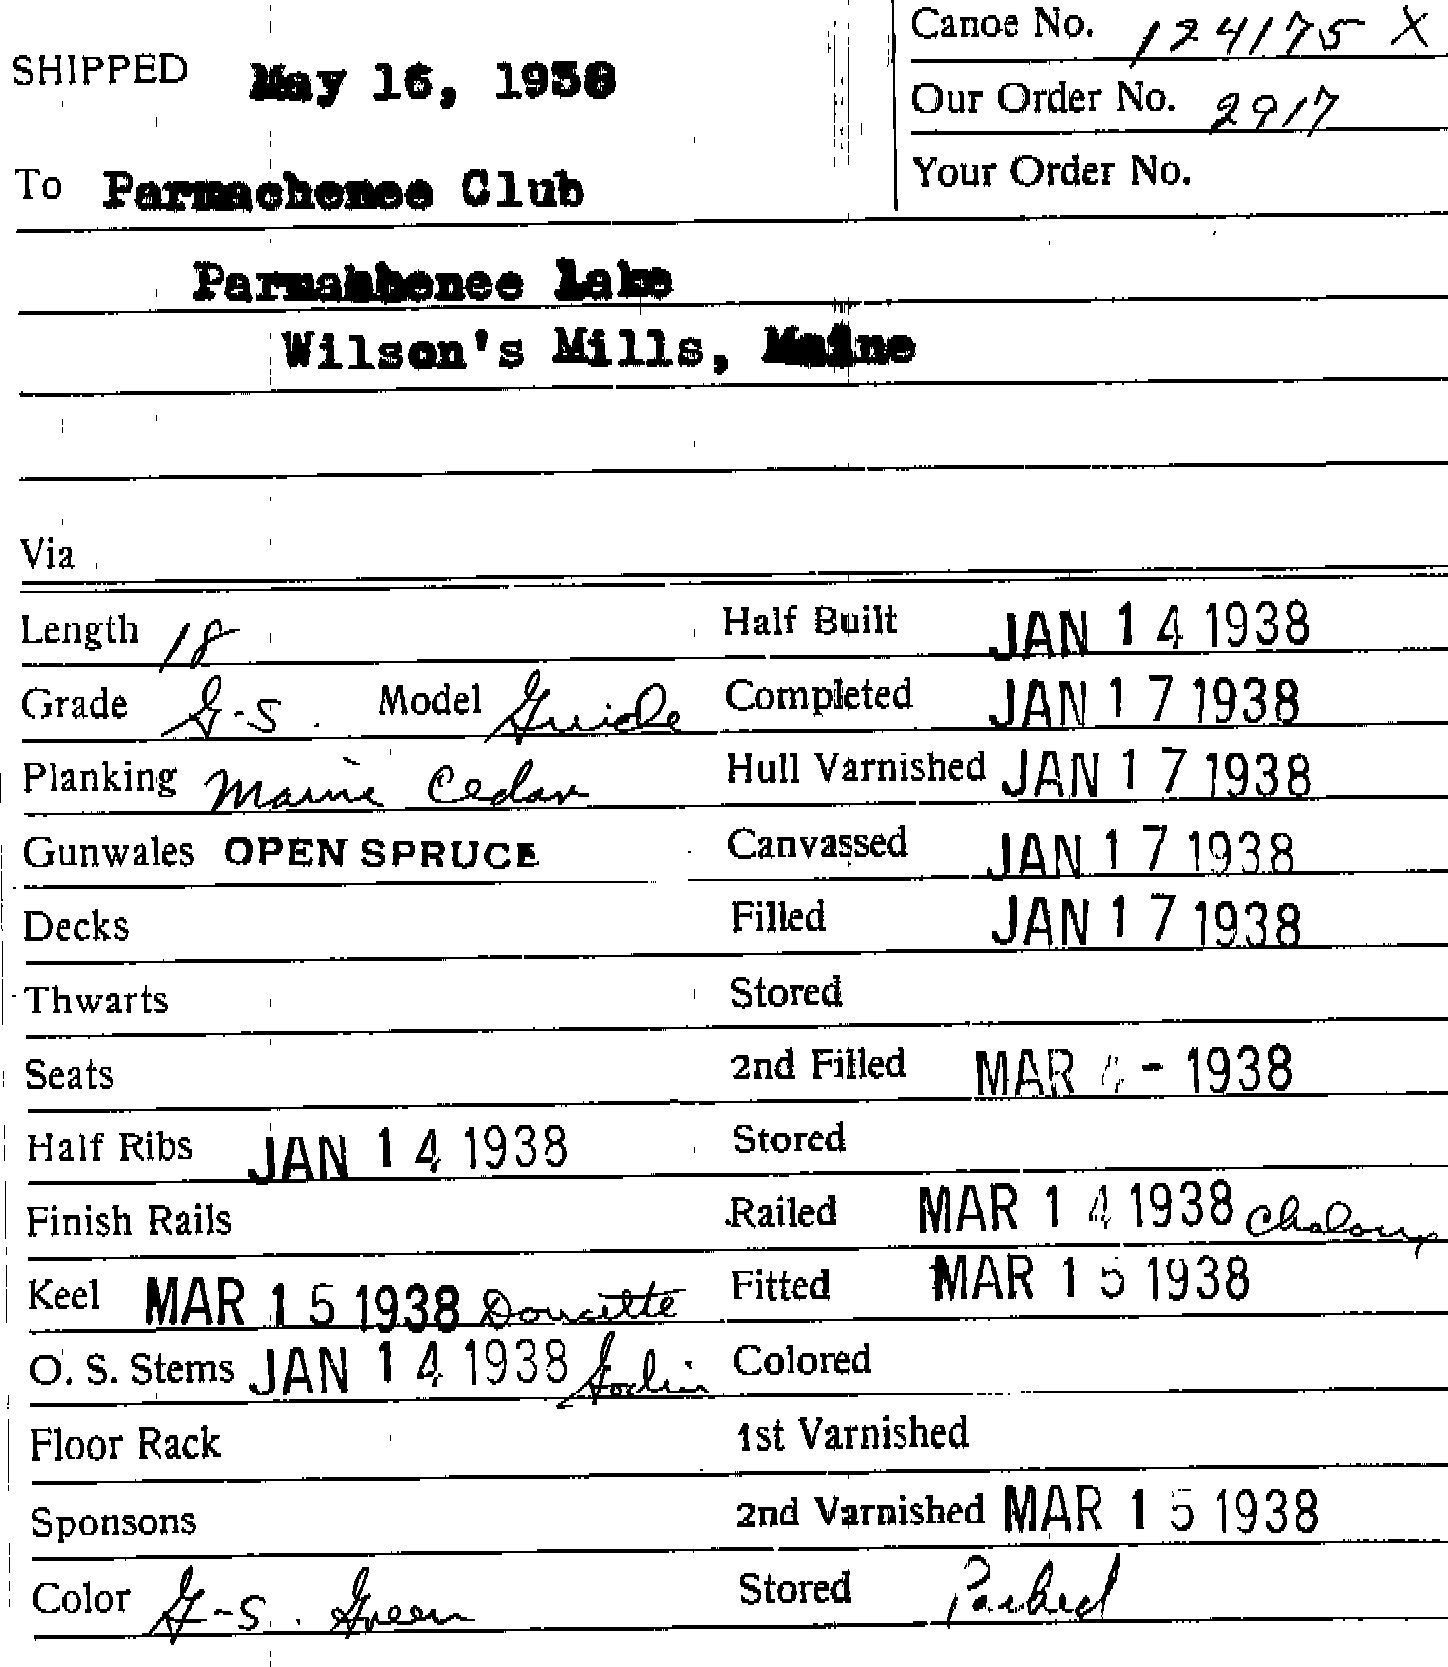 Canoe No. 124175 X
SHIPPED May 16, 1938
Our Order No. 2917
To Parmachenee Club
Your Order No.
Parmachenee Lake
Wilson's Mills, Maine
Via
Length 18
Half Built JAN 14 1938
Grade G-S. Model Guide
Completed JAN 17 1938
Planking Maine Cedar
Hull Varnished JAN 17 1938
Gunwales OPEN SPRUCE
Canvassed JAN 17 1938
Decks
Filled JAN 17 1938
Thwarts
Stored
Seats
2nd Filled MAR - 1938
Half Ribs JAN 14 1938
Stored
Finish Rails
Railed MAR 14 1938
Keel MAR 15 1938 Doucette
Fitted MAR 15 1938
O. S. Stems JAN 14 1938 Godin
Colored
Floor Rack
1st Varnished
Sponsons
2nd Varnished MAR 15 1938
Color G-S. Green
Stored Packed